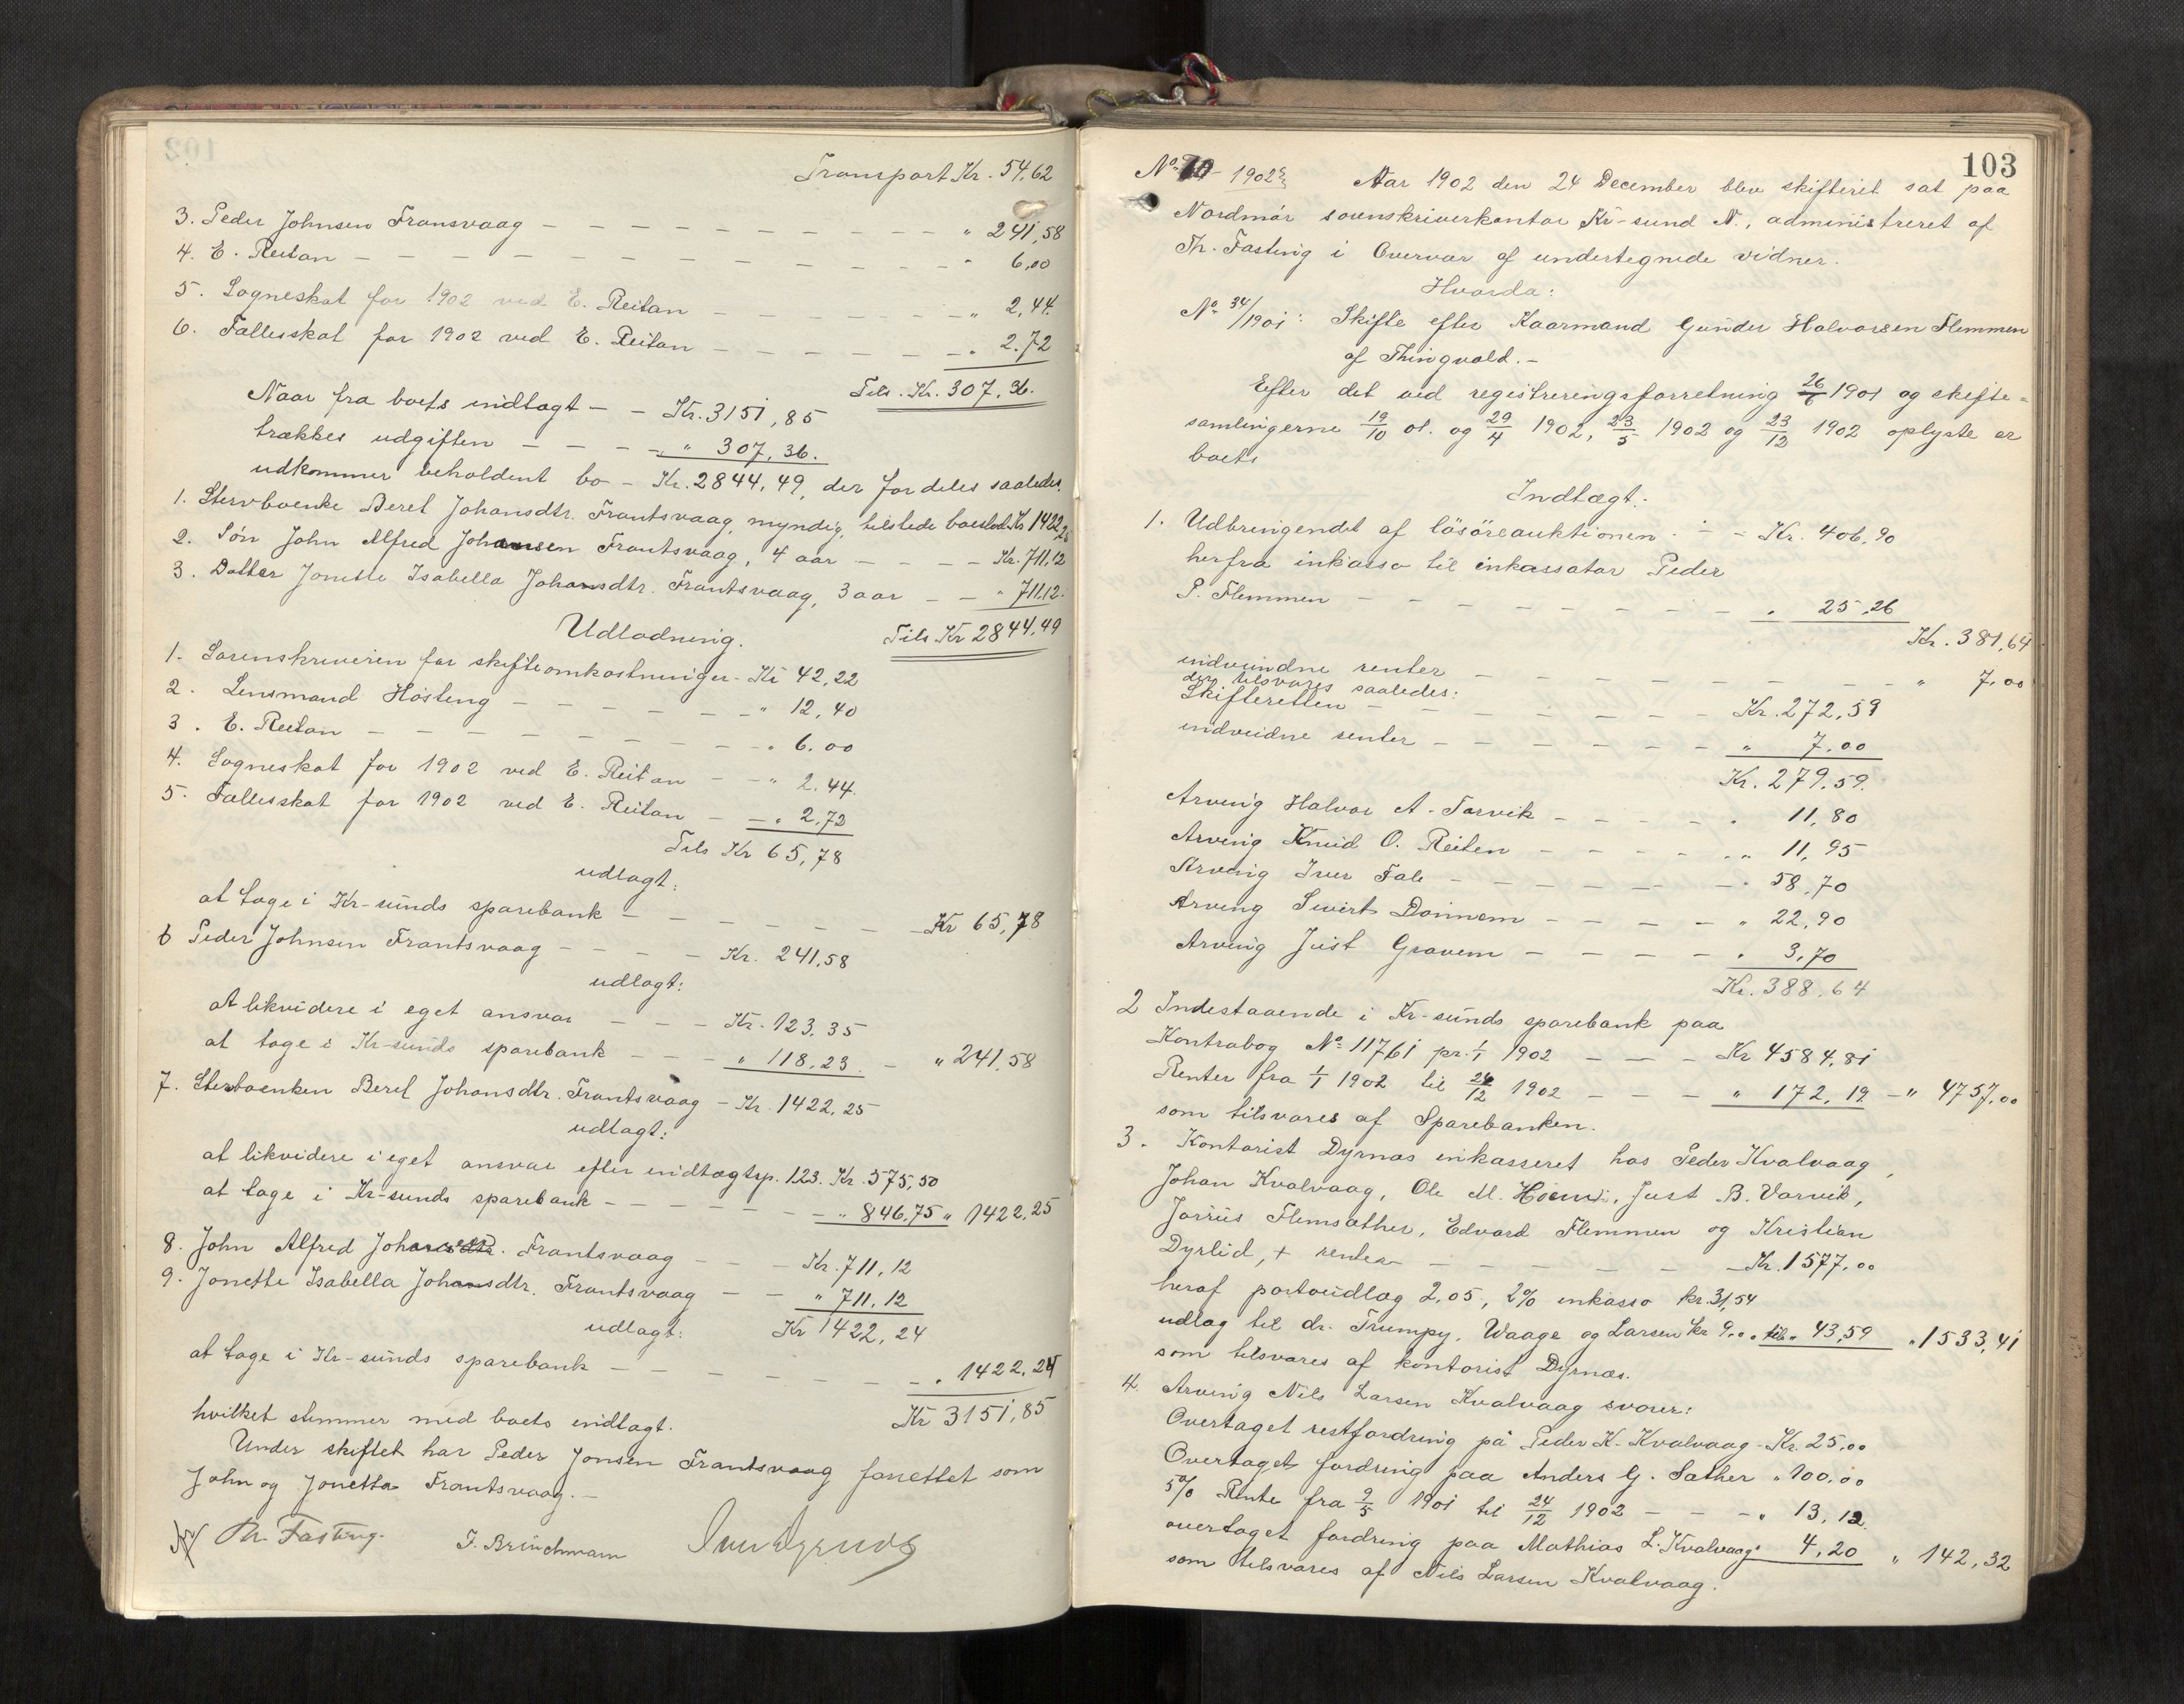 Transport Kr. 54,62
3. Peder Johnsen Fransvaag — — — — — — — — — — — " 241,58
4. E. Reitan — — — — — — — — — — — — " 6,00
5. Sogneskat for 1902 ved E. Reitan — — — — — — " 2,44.
6. Fællesskat for 1902 ved E. Reitan — — — — — — " 2.72
Tils. Kr. 307,36.
Naar fra boets indtægt — — Kr. 3151,85
trækkes udgiften — — — — " 307,36.
udkommer beholdent bo — Kr. 2844,49, der fordeles saaledes.
1. Stervboenke Beret Johansdtr. Frantsvaag, myndig, tilstede boeslod Kr 1422,25
2. Søn John Alfred Johansen Frantsvaag, 4 aar — — — — Kr. 711,12
3. Datter Jonette Isabella Johansdtr. Frantsvaag, 3 aar — — " 711,12.
Tils Kr 2844,49
Udlodning.
1. Sorenskriveren for skifteomkostninger — Kr 42,22
2. Lensmand Høsteng — — — — — — " 12,40
3. E. Reitan — — — — — — — — — " 6.00
4. Sogneskat for 1902 ved E. Reitan — — " 2,44.
5. Fællesskat for 1902 ved E. Reitan — — " 2,72
Tils Kr 65,78
udlagt:
at tage i Kr-sunds sparebank — — — — — — — Kr 65,78
6 Peder Johnsen Frantsvaag — — — — Kr. 241,58
udlagt:
at likvidere i eget ansvar — — — Kr. 123,35
at tage i Kr-sunds sparebank — — — " 118,23. — " 241,58
7. Stervboenken Beret Johansdtr. Frantsvaag — Kr. 1422,25
udlagt:
at likvidere i eget ansvar efter indtægtsp. 123. Kr. 575,50
at tage i Kr-sunds sparebank — — — — — — " 846,75 " 1422,25
8. John Alfred Johans Frantsvaag — — — Kr. 711,12
9. Jonette Isabella Johansdtr. Frantsvaag — — " 711,12
udlagt: Kr 1422,24
at tage i Kr-sunds sparebank — — — — — — — " 1422,24
hvilket stemmer med boets indtægt. Kr 3151,85
Under skiftet har Peder Jonsen Frantsvaag forrettet som
John og Jonetta Frantsvaag. —
Th. Fasting. J. Brinchmann
103
No 10 - 1902 Aar 1902 den 24 December blev skifteret sat paa
Nordmør sorenskriverkontor Kr-sund N., administreret af
Th. Fasting i Overvær af undertegnede vidner.
Hvorda:
No 34/1901: Skifte efter Kaarmand Gunder Halvorsen Flemmen
af Thingvold. —
Efter det ved registreringsforretning 26/6 1901 og skifte-
samlingerne 19/10 01. og 29/4 1902, 23/5 1902 og 23/12 1902 oplyste er
boets
Indtægt:
1. Udbringendet af løsøreauktionen — — Kr. 406,90
herfra inkasso til inkassator Peder
P. Flemmen — — — — — — — — — " 25,26
Kr. 381,64
indvundne renter — — — — — — — — — — " 7,00
der tilsvares saaledes:
Skifteretten — — — — — — — — Kr. 272,59
indvundne renter — — — — — — — " 7,00
Kr. 279,59.
Arving Halvor A. Torvik — — — — — " 11,80
Arving Knud O. Reiten — — — — — " 11,95
Arving Iver Fale — — — — — — — " 58,70
Arving Sivert Dønnem — — — — — " 22,90
Arving Just Gravem — — — — — " 3,70
Kr. 388,64
2 Indestaaende i Kr-sunds sparebank paa
Kontrabog No 11761 pr. 1/1 1902 — — — Kr 4584,81
Renter fra 1/1 1902 til 24/12 1902 — — — " 172,19 — " 4757,00
som tilsvares af Sparebanken.
3. Kontorist Dyrnæs inkasseret hos Peder Kvalvaag,
Johan Kvalvaag, Ole M. Hoem, Just B. Varvik,
Jørius Flemsæther, Edvard Flemmen og Kristian
Dyrlid, + renter — — — — — — — Kr. 1577,00
heraf portoudlæg 2,05, 2% inkasso kr. 31,54
udlæg til dr. Trumpy, Waage og Larsen kr 9,00 tils " 43,59 " 1533,41
som tilsvares af kontorist Dyrnæs.
4. Arving Nils Larsen Kvalvaag svarer:
Overtaget restfordring på Peder K. Kvalvaag — Kr. 25,00
Overtaget fordring paa Anders G. Sæther " 100,00
5% Rente fra 9/5 1901 til 24/12 1902 — — — " 13,12
overtaget fordring paa Mathias L. Kvalvaag " 4,20 " 142,32
som tilsvares af Nils Larsen Kvalvaag.